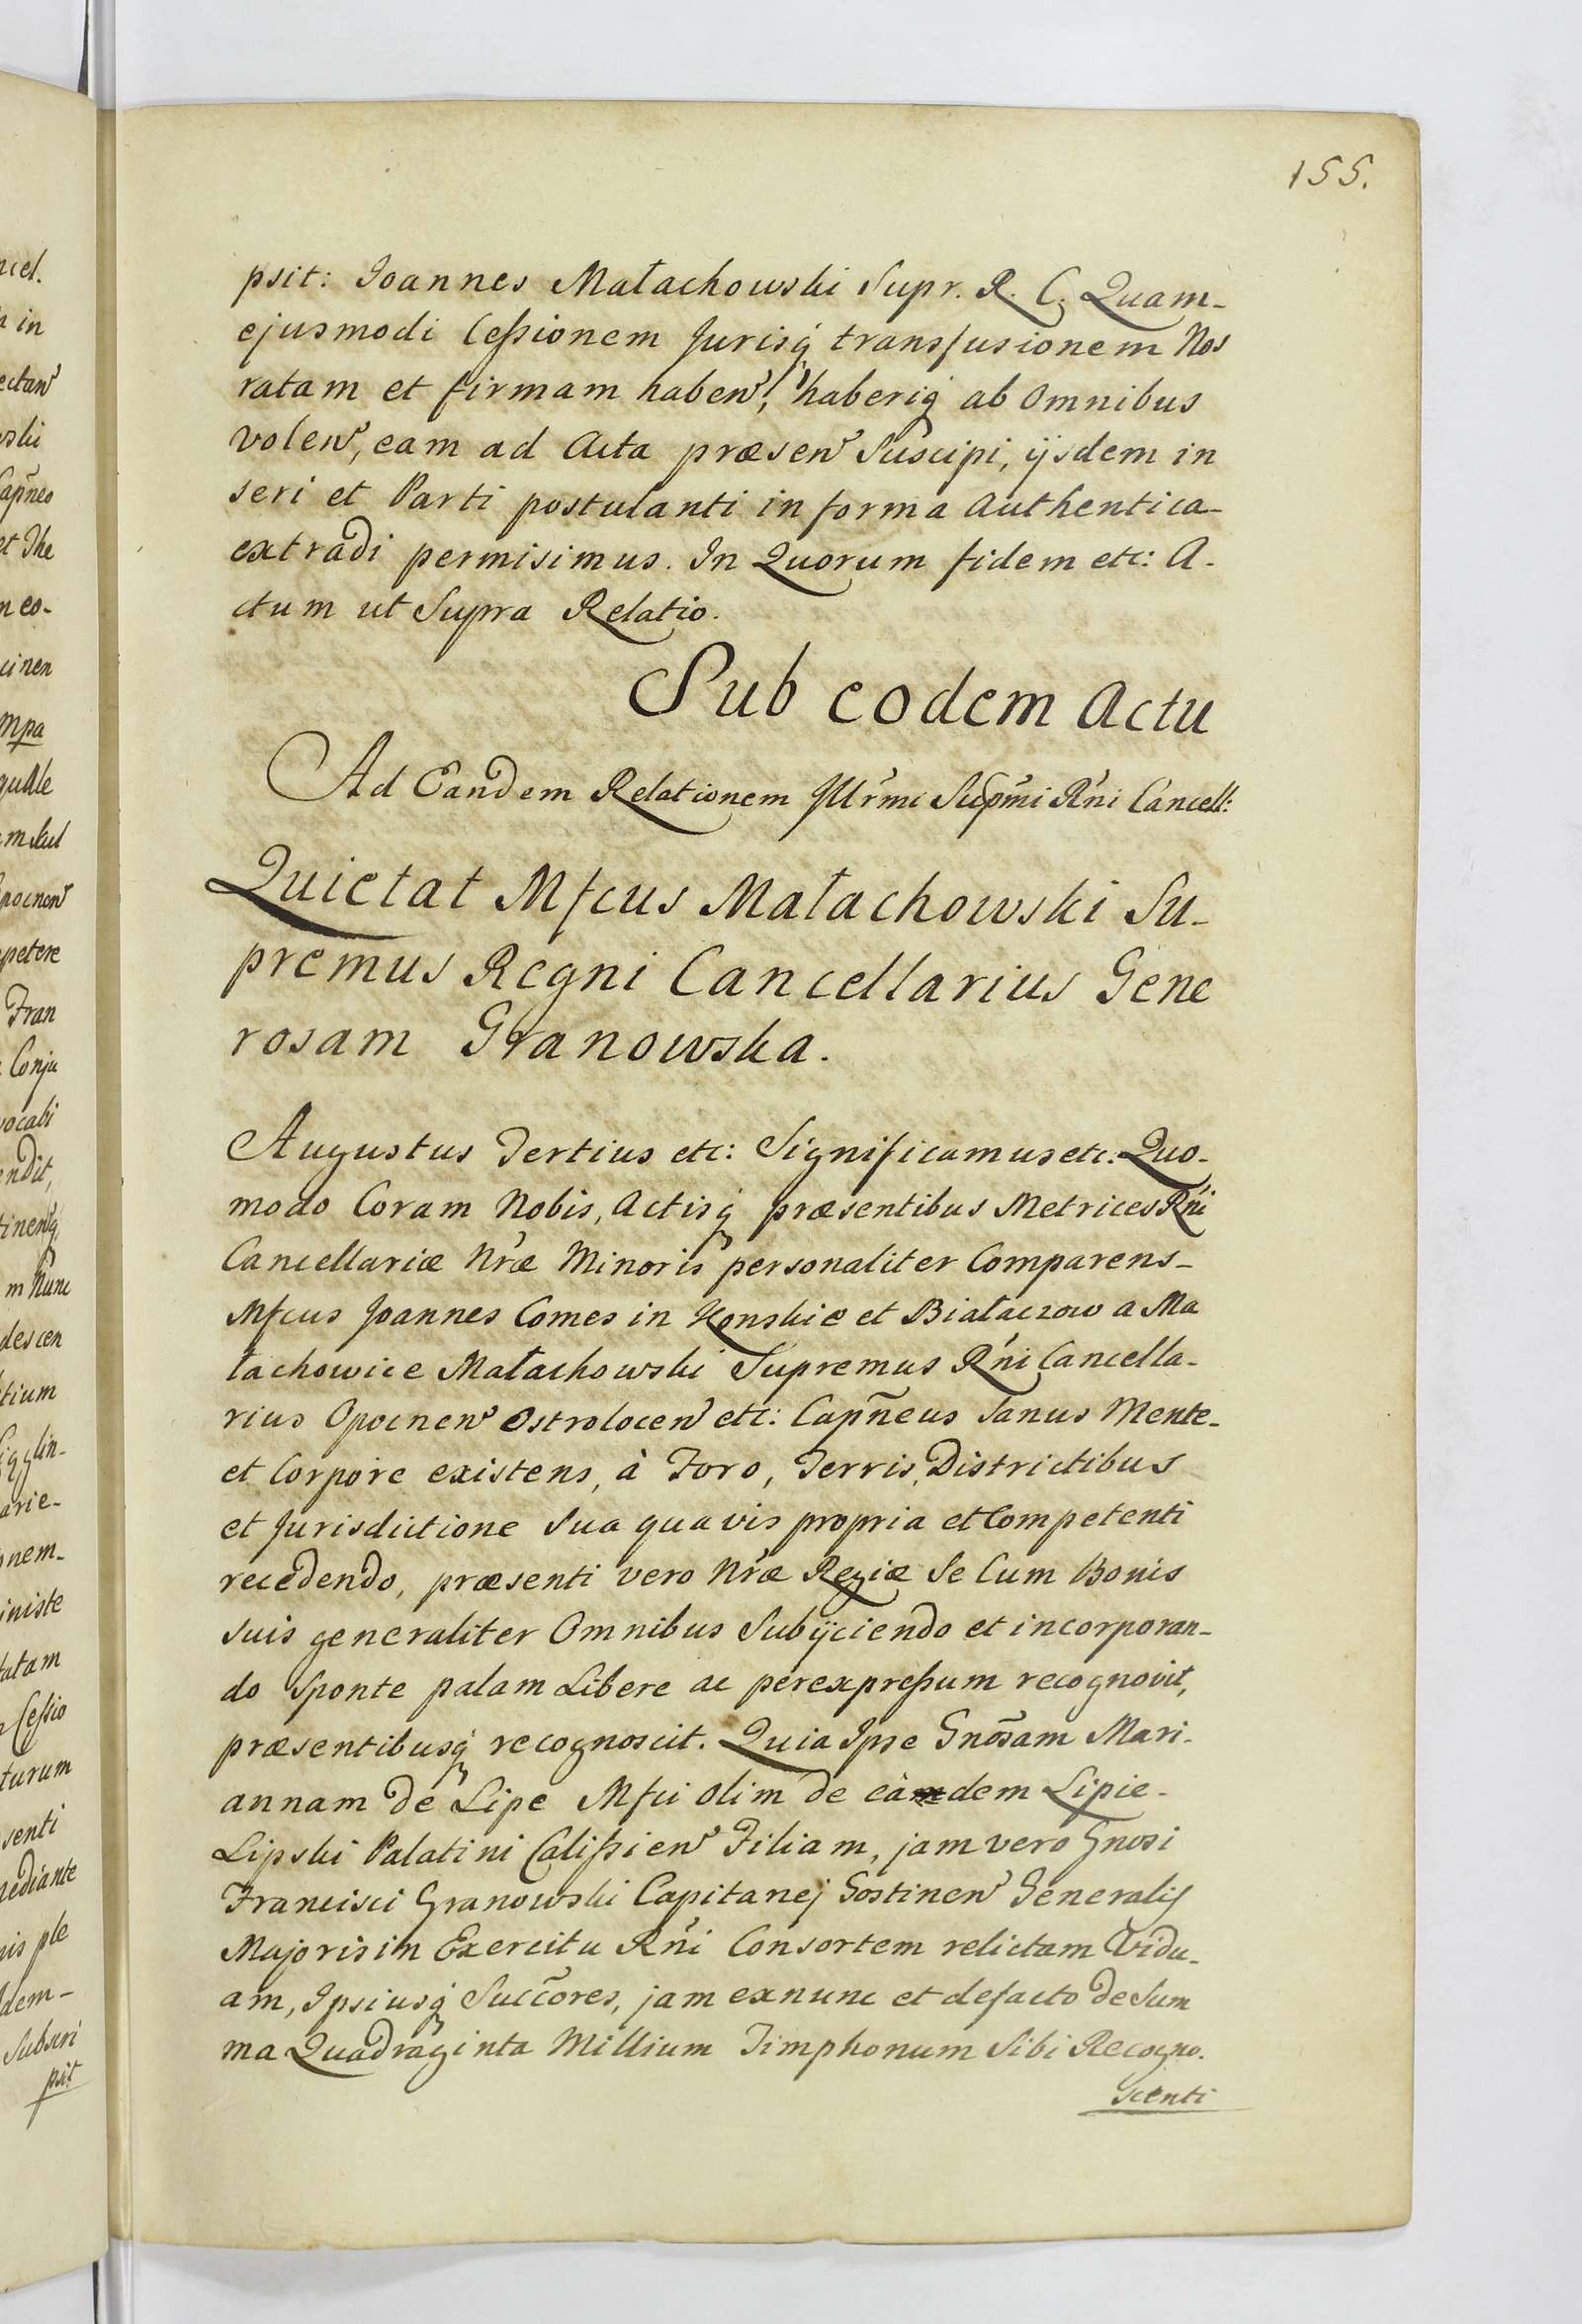 155.
psit: Joannes Małachowski Supr. R. C. Quam-
ejusmodi Cessionem Jurisq́ transfusionem Nos
ratam et firmam haben̄, haberiq́ ab Omnibus
volen̄, eam ad Acta præsen̄ Suscipi, ijsdem in
seri et Parti postulanti in forma Authentica-
extradi permisimus. In Quorum fidem etc: A-
ctum ut Supra Relatio.
Sub eodem Actu
Ad Eandem Relationem Illr̃mi Sup̃mi Rñi Cancell:
Quietat Mfcus Małachowski Su-
premus Regni Cancellarius Gene
rosam Granowska.
Augustus Tertius etc: Significamus etc. Quo-
modo Coram Nobis, Actisq́ præsentibus Metrices Rñi
Cancellariæ Nr̃æ Minoris personaliter Comparens-
Mfcus Joannes Comes in Konskie et Białaczow a Ma
łachowice Małachowski Supremus Rñi Cancella-
rius Opocnen̄ Ostrolocen̄ etc: Capñeus Sanus Mente-
et Corpore existens, à Foro, Terris, Districtibus
et Jurisdictione Sua quavis propria et Competenti
recedendo, præsenti vero Nr̃æ Regiæ Se Cum Bonis
suis generaliter Omnibus Subijciendo et incorporan-
do Sponte palam Libere ac per expressum recognovit,
præsentibusq́ recognoscit. Quia Ipse Gnõsam Mari-
annam de Lipe Mfci olim de eàdem Lipie-
Lipski Palatini Calissien̄ Filiam, jam vero Gnosi
Francisci Granowski Capitanej Gostinen̄ Generalis
Majoris in Exercitu Rñi Consortem relictam Vidu-
am, Ipsiusq́ Succ̃ores, jam exnunc et defacto de Sum
ma Quadraginta Millium Timphonum Sibi Recogno-
scenti